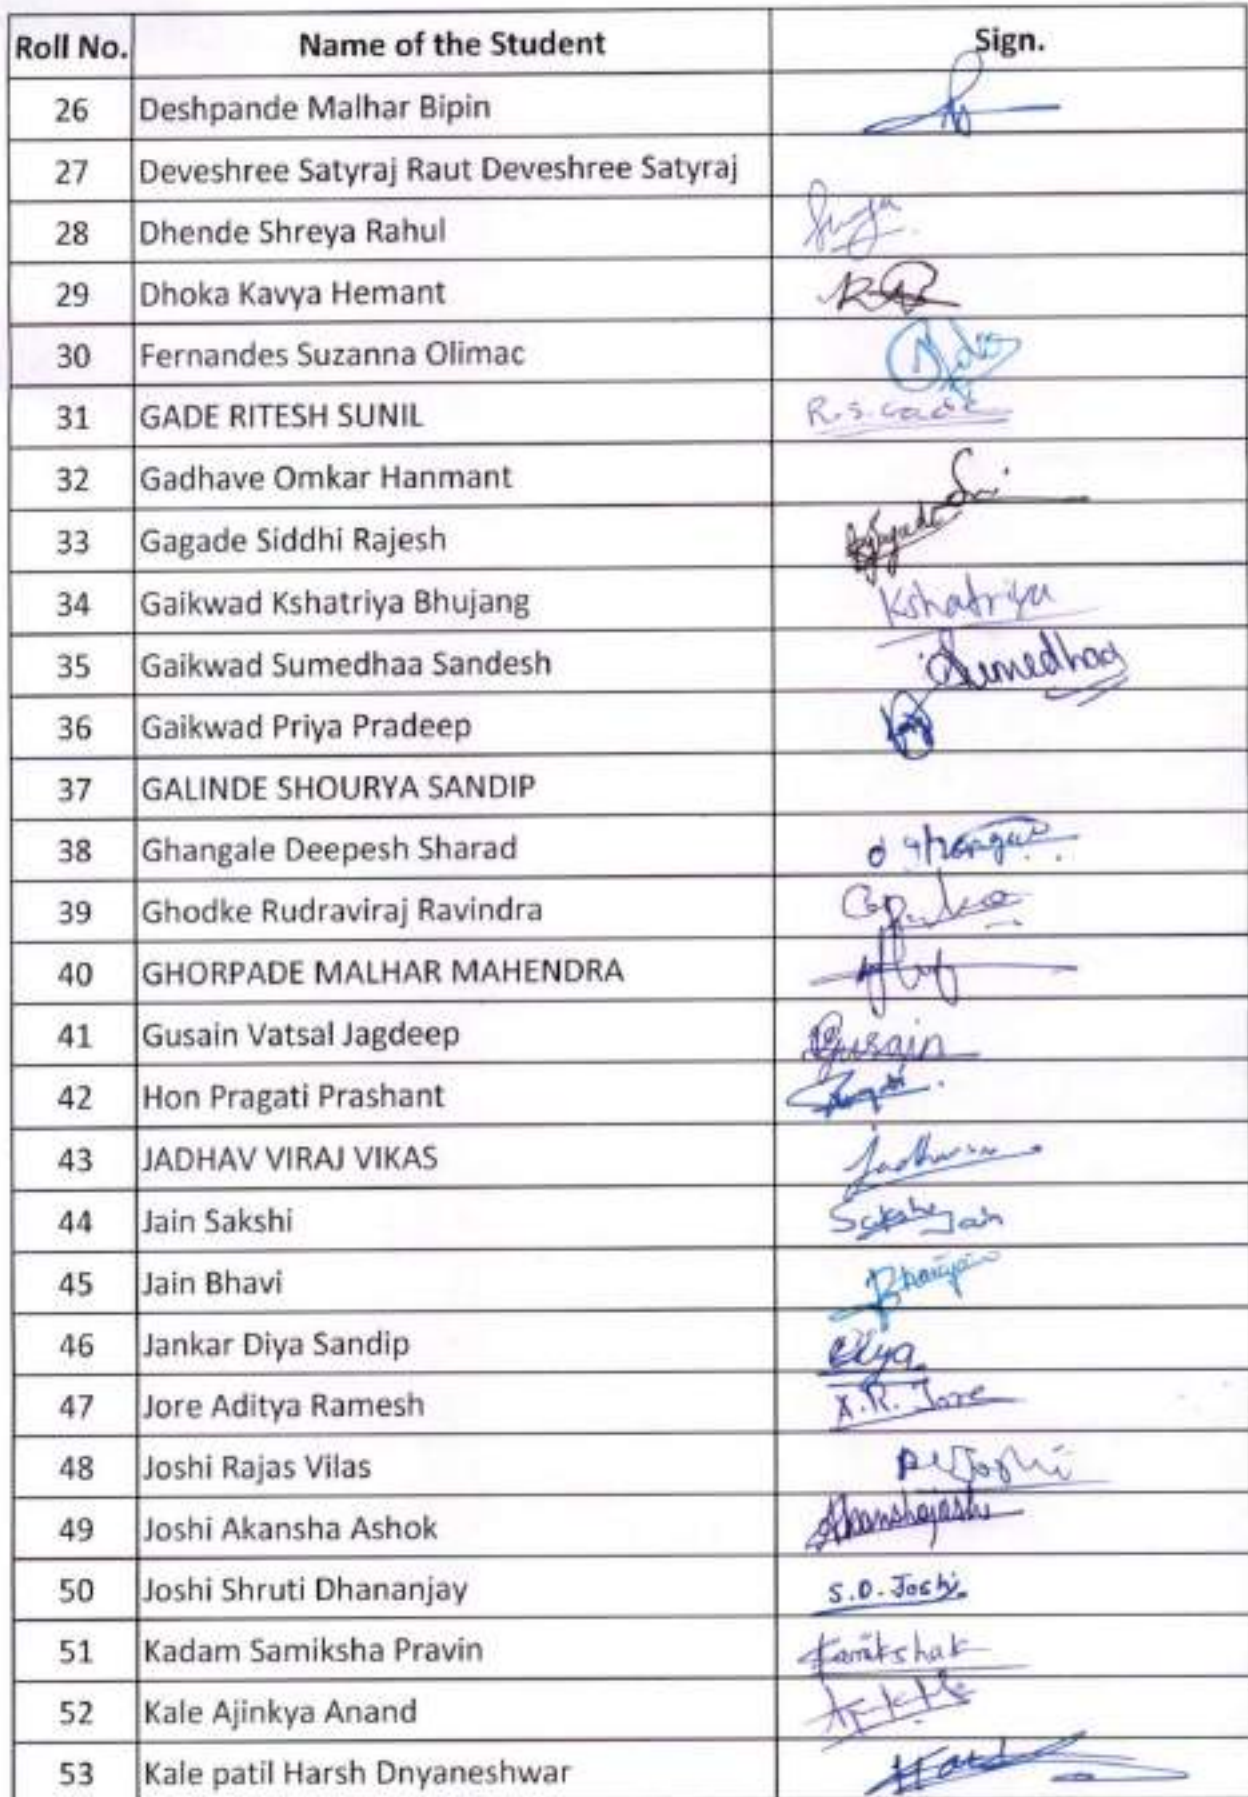 Roll No. Name of the Student Sign.
26 Deshpande Malhar Bipin
27 Deveshree Satyraj Raut Deveshree Satyraj
28 Dhende Shreya Rahul
29 Dhoka Kavya Hemant
30 Fernandes Suzanna Olimac
31 GADE RITESH SUNIL R.S. Gade
32 Gadhave Omkar Hanmant
33 Gagade Siddhi Rajesh
34 Gaikwad Kshatriya Bhujang Kshatriya
35 Gaikwad Sumedhaa Sandesh Sumedhaa
36 Gaikwad Priya Pradeep
37 GALINDE SHOURYA SANDIP
38 Ghangale Deepesh Sharad
39 Ghodke Rudraviraj Ravindra
40 GHORPADE MALHAR MAHENDRA
41 Gusain Vatsal Jagdeep Gusain
42 Hon Pragati Prashant
43 JADHAV VIRAJ VIKAS
44 Jain Sakshi Sakshi Jain
45 Jain Bhavi
46 Jankar Diya Sandip Diya
47 Jore Aditya Ramesh A.R. Jore
48 Joshi Rajas Vilas
49 Joshi Akansha Ashok
50 Joshi Shruti Dhananjay S.D. Joshi
51 Kadam Samiksha Pravin
52 Kale Ajinkya Anand
53 Kale patil Harsh Dnyaneshwar